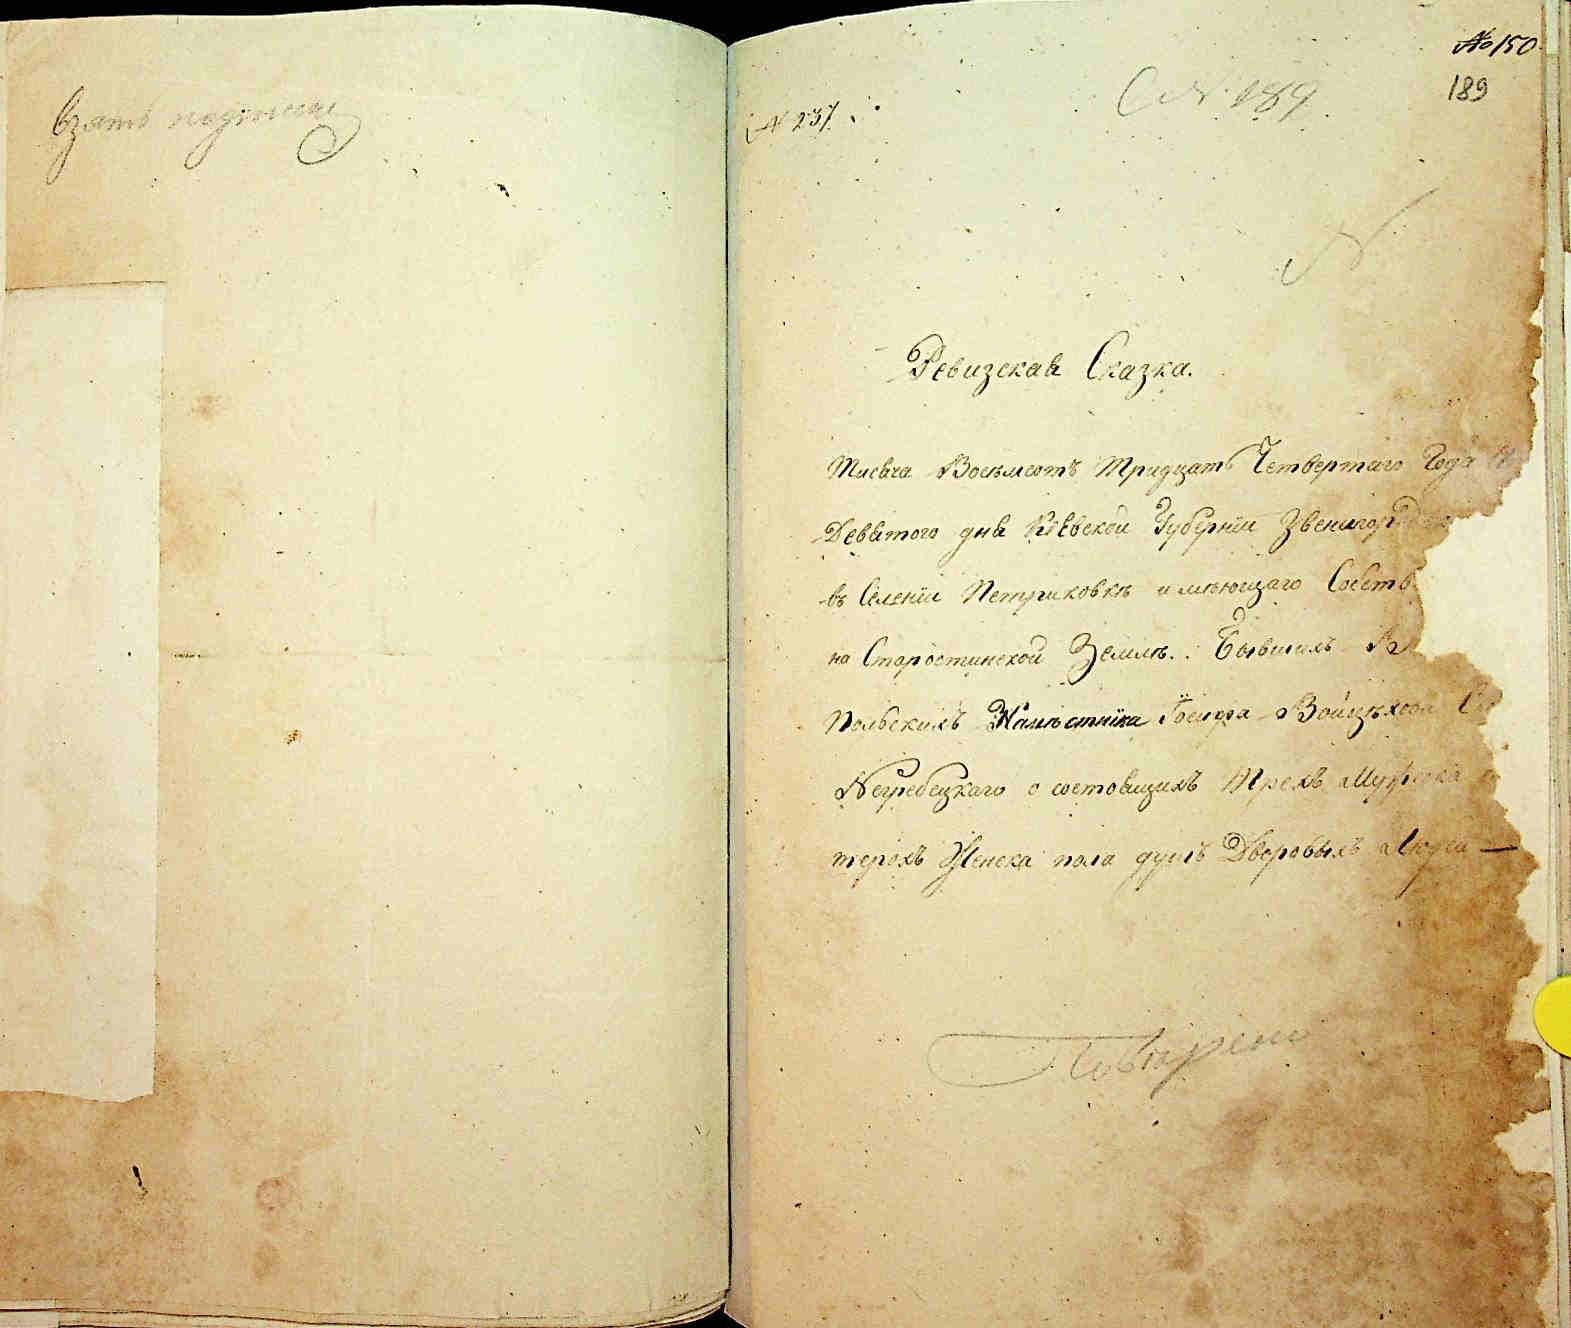 Взять
№ 150
189
№ 189
№ 237
Ревизская Сказка.
Тисяча Восемьсотъ Тридцать Четвертаго Года
Девятого дня Кіевской Губерніи Звенигород
въ Селеніи Петриковкѣ имѣющаго Собств
на Старостинской Землѣ. Бывшихъ
Польскихъ Намѣстника Іосифа Войцѣхова
Негребецкаго о состоящихъ Трехъ Мужеска
терохъ Женска пола душъ Дворовыхъ Людей —